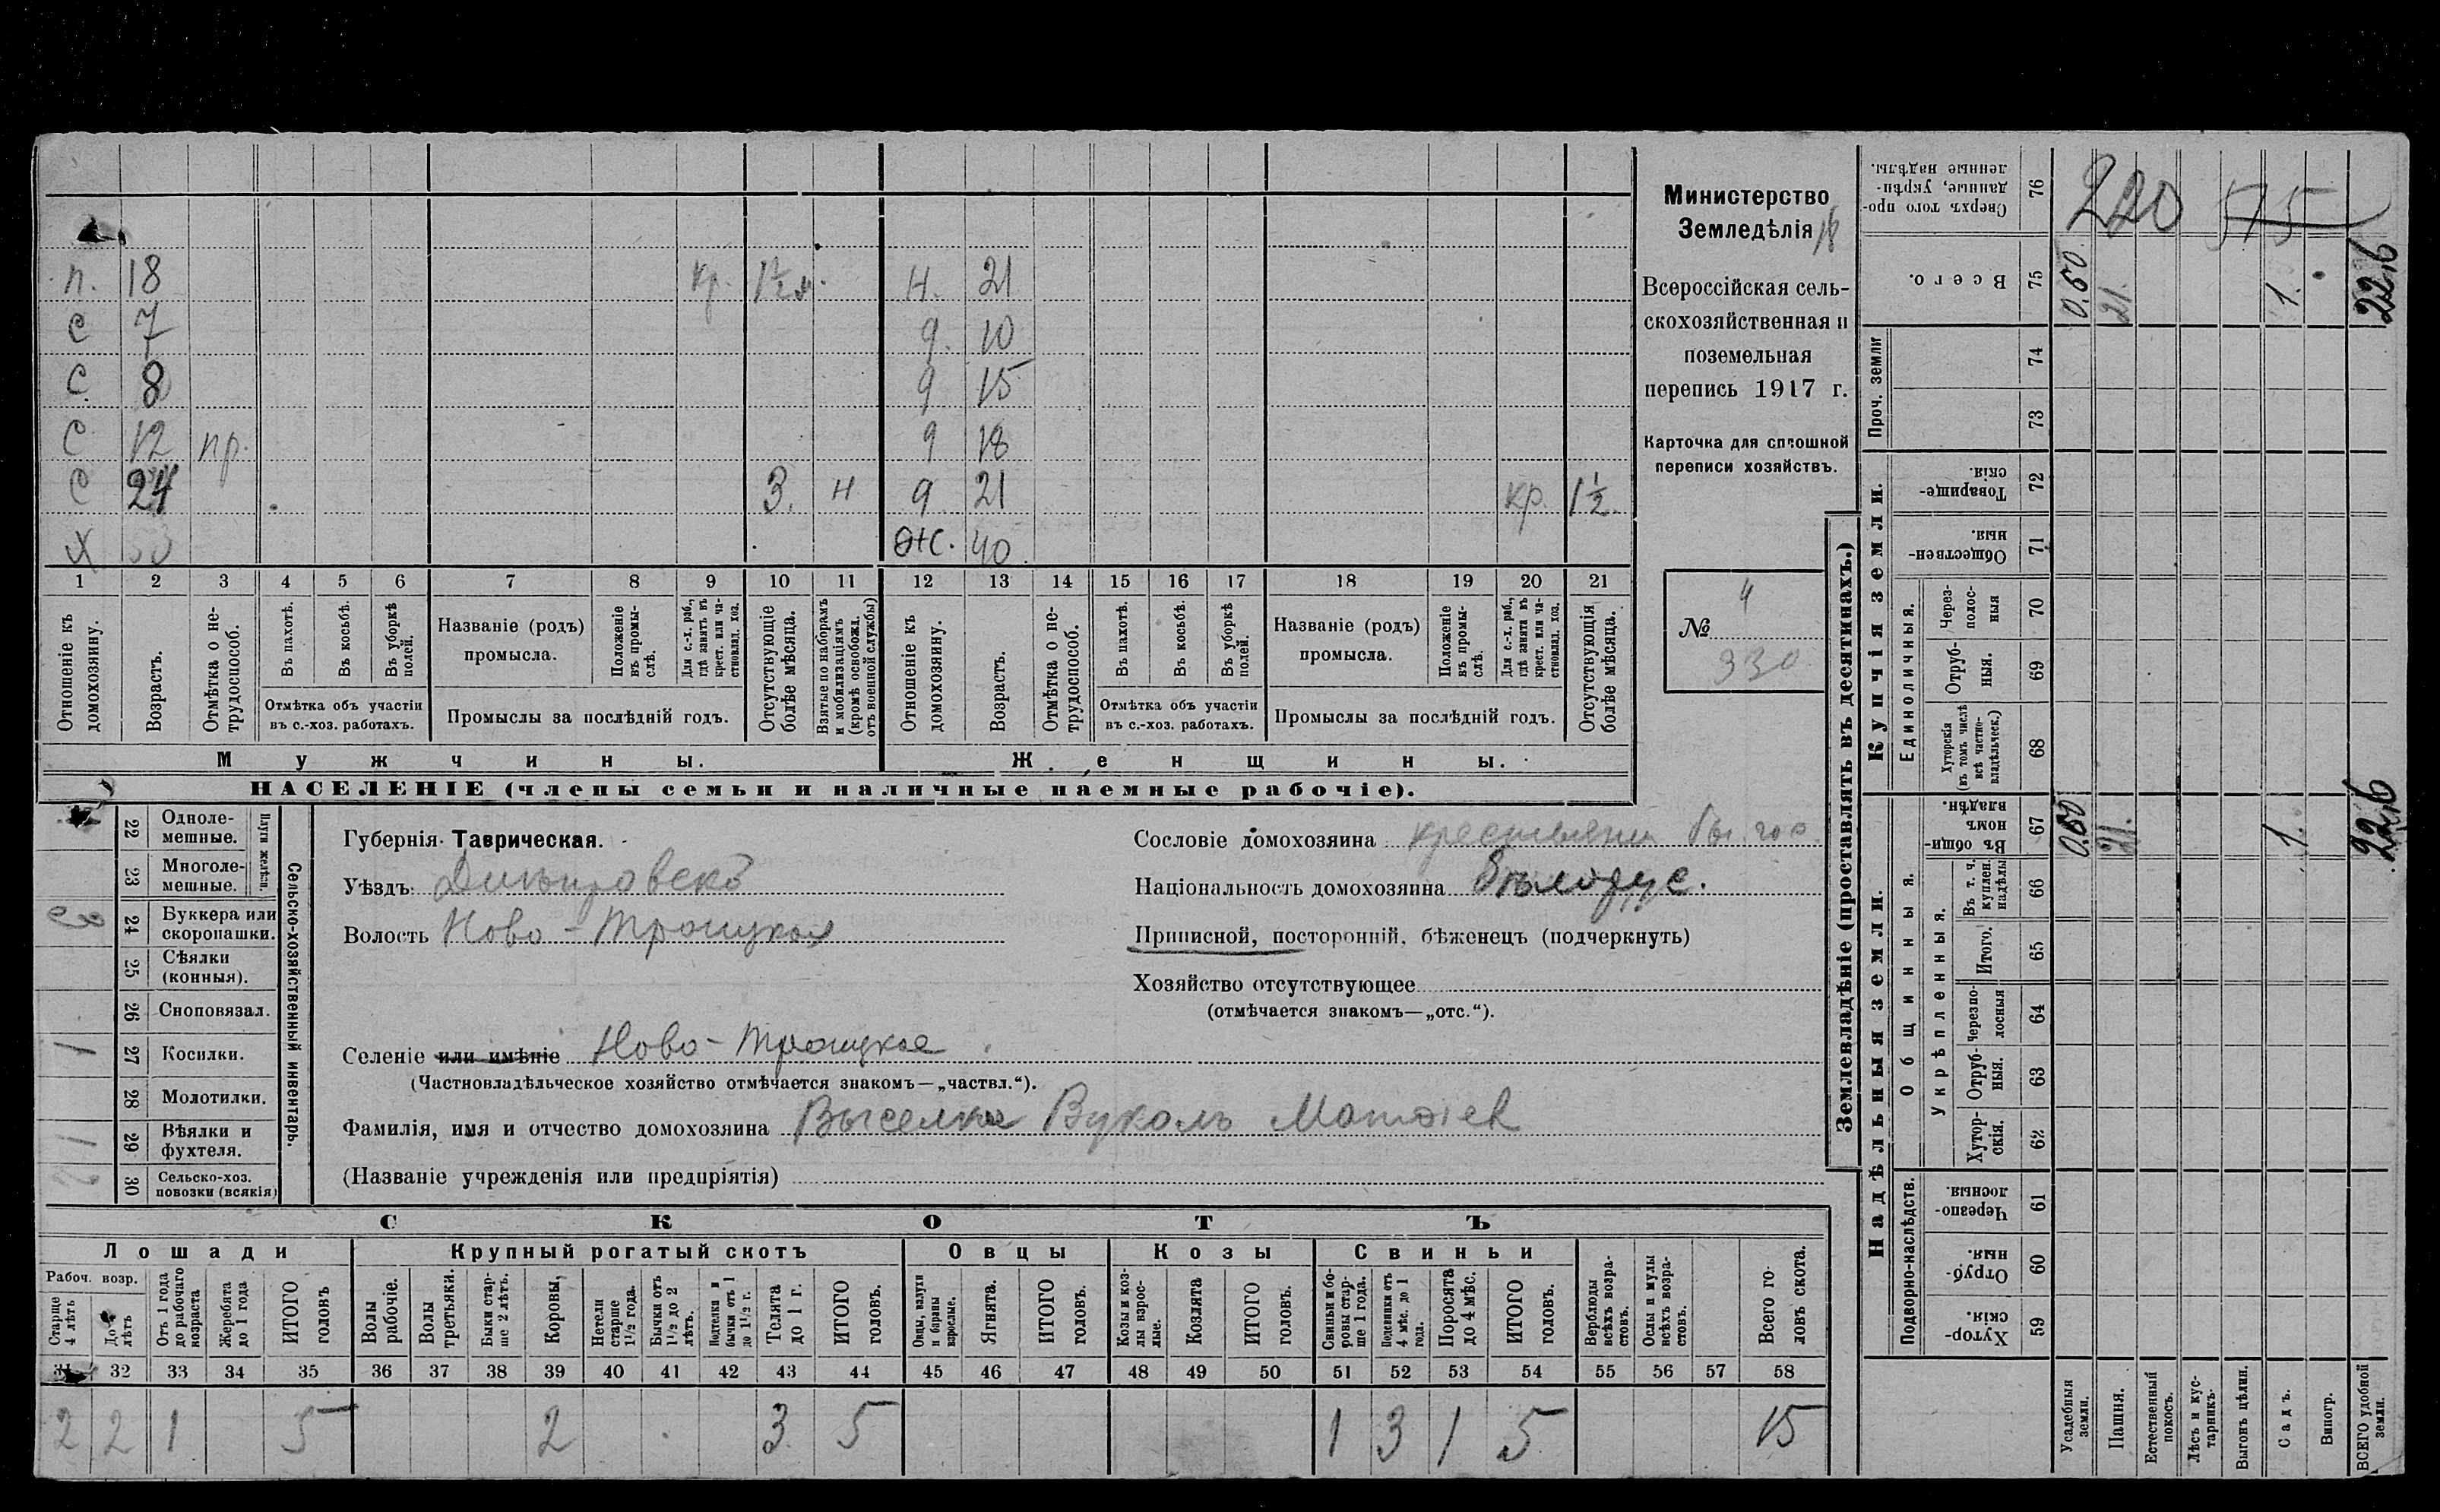 п. 18 кр. 1½ м. н. 21
с 7 д. 10
с. 8 д 15
с 12 пр. д 18
с 24 3. н д 21 кр. 1½.
х ж. 40
1 2 3 4 5 6 7 8 9 10 11 12 13 14 15 16 17 18 19 20 21
Отношеніе къ домохозяину.
Возрастъ.
Отмѣтка о не-трудоспособ.
Въ пахотѣ.
Въ косьбѣ.
Въ уборкѣ полей.
Отмѣтка объ участіи въ с.-хоз. работахъ.
Названіе (родъ) промысла.
Положеніе въ промы-слѣ.
Для с.-х. раб., гдѣ занятъ въ крест. или ча-стновлад. хоз.
Промыслы за послѣдній годъ.
Отсутствующіе болѣе мѣсяца.
Взятые по наборамъ и мобилизаціямъ (кромѣ освобожд. отъ военной службы)
Отношеніе къ домохозяину.
Возрастъ.
Отмѣтка о не-трудоспособ.
Въ пахотѣ.
Въ косьбѣ.
Въ уборкѣ полей.
Отмѣтка объ участіи въ с.-хоз. работахъ.
Названіе (родъ) промысла.
Положеніе въ промы-слѣ.
Для с.-х. раб., гдѣ занята въ крест. или ча-стновлад. хоз.
Промыслы за послѣдній годъ.
Отсутствующія болѣе мѣсяца.
Мужчины. Женщины.
НАСЕЛЕНІЕ (члены семьи и наличные наемные рабочіе).
Министерство
Земледѣлія
Всероссійская сель-
скохозяйственная и
поземельная
перепись 1917 г.
Карточка для сплошной
переписи хозяйствъ.
4
№
330
Сельско-хозяйственный инвентарь.
Плуги желѣзн.
22 Одноле-мешные.
23 Многоле-мешные.
24 Буккера или скоропашки.
25 Сѣялки (конныя).
26 Сноповязал.
27 Косилки. 1
28 Молотилки.
29 Вѣялки и фухтеля. 1
30 Сельско-хоз. повозки (всякія)
Губернія Таврическая.
Уѣздъ Днѣпровскъ
Волость Ново-Троицкая
Сословіе домохозяина крестьянин бы. гос.
Національность домохозяина
Приписной, посторонній, бѣженецъ (подчеркнуть)
Хозяйство отсутствующее
(отмѣчается знакомъ—„отс.“).
Селеніе или имѣніе Ново-Троицкое
(Частновладѣльческое хозяйство отмѣчается знакомъ—„частвл.“).
Фамилія, имя и отчество домохозяина Вуколъ
(Названіе учрежденія или предпріятія)
СКОТЪ
Лошади Крупный рогатый скотъ Овцы Козы Свиньи
Рабоч. возр.
Старше 4 лѣтъ
До 4 лѣтъ
Отъ 1 года до рабочаго возраста
Жеребята до 1 года
ИТОГО головъ
Волы рабочіе.
Волы третьяки.
Быки стар-ше 2 лѣтъ.
Коровы.
Нетели старше 1½ года.
Бычки отъ 1½ до 2 лѣтъ.
Подтелки и бычки отъ 1 до 1½ г.
Телята до 1 г.
ИТОГО головъ.
Овцы, валухи и бараны взрослые.
Ягнята.
ИТОГО головъ.
Козы и коз-лы взрос-лые.
Козлята
ИТОГО головъ.
Свиньи и бо-ровы стар-ше 1 года.
Подсвинки отъ 4 мѣс. до 1 года.
Поросята до 4 мѣс.
ИТОГО головъ.
Верблюды всѣхъ возра-стовъ.
Ослы и мулы всѣхъ возра-стовъ.
Всего го-ловъ скота.
31 32 33 34 35 36 37 38 39 40 41 42 43 44 45 46 47 48 49 50 51 52 53 54 55 56 57 58
2 2 1 5 2 3 5 1 3 1 5 15
Землевладѣніе (проставлять въ десятинахъ.)
220 575
Сверхъ того про-данные, укрѣп-ленные надѣлы. 76
Всего. 75 0.50 21. 1. 22,6
Проч. земли
74
73
Купчія земли.
Товарище-скія. 72
Обществен-ныя. 71
Единоличныя.
Через-полос-ныя 70
Отруб-ныя. 69
Хуторскія (въ томъ числѣ всѣ частно-владѣльческ.) 68
Надѣльныя земли.
Общинныя.
Въ общин-номъ владѣн. 67 0.50 21. 1. 22,6
Въ т. ч. куплен. надѣлы 66
Укрѣпленныя.
Итого. 65
Черезпо-лосныя 64
Отруб-ныя. 63
Хутор-скія. 62
Подворно-наслѣдств.
Черезпо-лосныя. 61
Отруб-ныя. 60
Хутор-скія. 59
Усадебныя земли.
Пашня.
Естественный покосъ.
Лѣсъ и кус-тарникъ.
Выгонъ цѣлин.
Садъ.
Виногр.
ВСЕГО удобной земли.